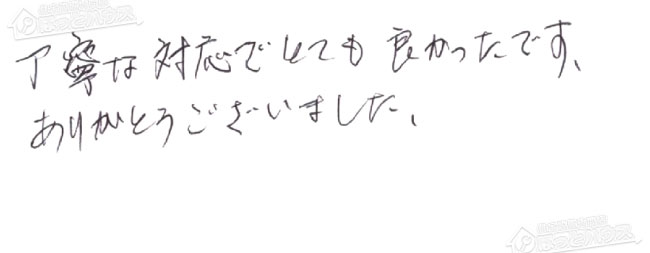 丁寧な対応でとても良かったです、
ありがとうございました、